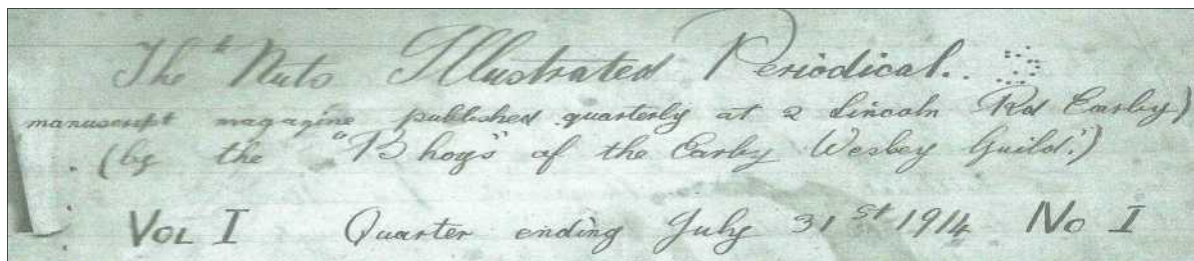 The "Nuts Illustrated Periodical.
manuscript magazine published quarterly at 2 Lincoln Rd Earby)
(by the "B hogs" of the Earby Wesley Guild.)
VOL I Quarter ending July 31st 1914 No I